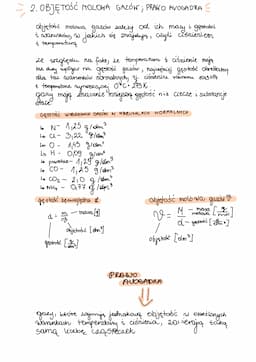 2. OBJĘTOŚĆ MOLOWA GAZÓW, PRAWO AVOGADRA
objętość molowa gazów zależy od ich masy i gęstości
i warunków, w jakich się znajdują, czyli ciśnieniem
i temperaturą
ze względu na fakt, że temperatura i ciśnienie mają
na duży wpływ na gęstość gazów, najczęściej gęstość określamy
dla tzw warunków normalnych tj. ciśnienia
i temperatura wynoszącej 0°C = 273K
gazy mają znacznie mniejszą gęstość niż ciecze i substancje
stałe
GĘSTOŚĆ WYBRANYCH GAZÓW W WARUNKACH NORMALNYCH
↳ N - 1,25 g/dm³
↳ Cl - 3,22 g/dm³
↳ O - 1,43 g/dm³
↳ H - 0,09 g/dm³
↳ powietrze - 1,29 g/dm³
↳ CO - 1,25 g/dm³
↳ CO₂ - 2,0 g/dm³
↳ NH₃ - 0,77 g/dm³
gęstość
d = m/V
masa [g]
objętość [dm³]
gęstość [g/dm³]
objętość molowa gazów
V = M/d
masa molowa [g/mol]
gęstość [g/dm³]
objętość [dm³]
PRAWO
AVOGADRA
gazy, które zajmują jednakową objętość w określonych
warunkach temperatury i ciśnienia, zawierają taką
samą liczbę cząsteczek